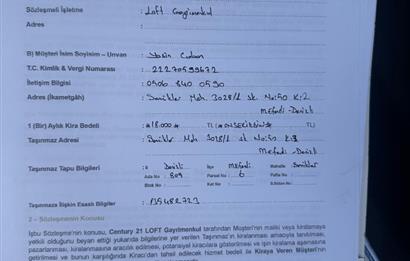 Sözleşmeli İşletme : Loft Gayrimenkul
B) Müşteri İsim Soyisim – Unvan :
T.C. Kimlik & Vergi Numarası : 22270599672
İletişim Bilgisi : 0506 840 0590
Adres (İkametgâh) : Mah. 3028/1 sk. No:50 K:2
1 (Bir) Aylık Kira Bedeli : 18.000 TL( ONSEKİZBİN TL)
Taşınmaz Adresi : Mah 3028/1 sk No:50 K:3
Taşınmaz Tapu Bilgileri : İl Denizli İlçe Mahalle
Ada No : 809 Parsel No 6 Pafta No :
Blok No : Kat No : B.Bölüm No :
Taşınmaza İlişkin Esaslı Bilgiler :
2 – Sözleşmenin Konusu
İşbu Sözleşme'nin konusu, Century 21 LOFT Gayrimenkul tarafından Müşteri'nin maliki veya kiralamaya
yetkili olduğunu beyan ettiği yukarıda bilgilerine yer verilen Taşınmaz'ın kiralanması amacıyla tanıtılması,
pazarlanması, kiralanmasına aracılık edilmesi, potansiyel kiracılara gösterilmesi ve işin kiralama aşamasına
getirilmesi ve bunun karşılığında Kiracı'dan tahsil edilecek hizmet bedeli ile Kiraya Veren Müşteri'nin